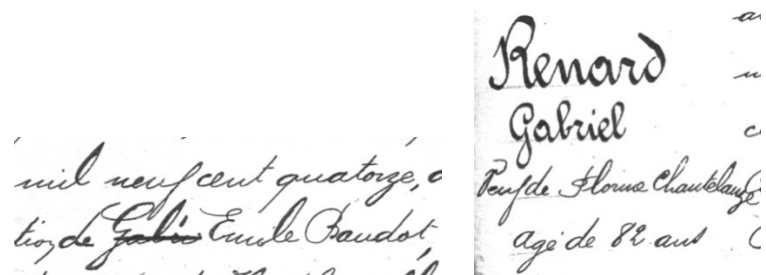 mil neuf cent quatorze,
tion de Gabri Emile Baudot
Renard
Gabriel
Veuf de Florine Chantelauze
agé de 82 ans